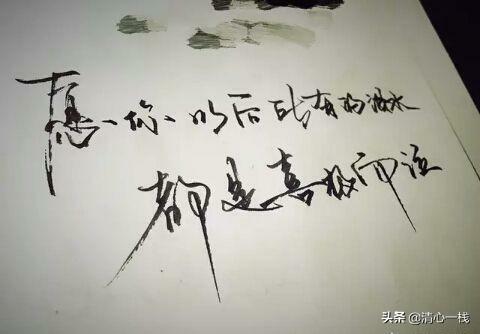 愿你以后所有的泪水
都是喜极而泣
头条 @清心一栈